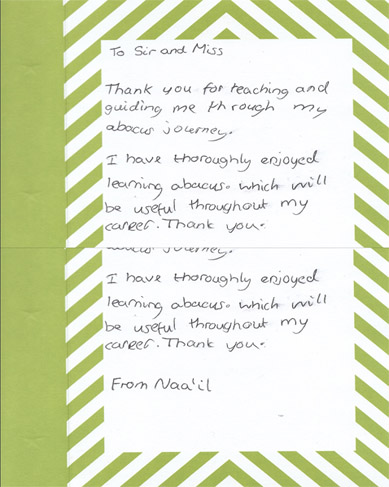 To Sir and Miss
Thank you for teaching and
guiding me through my
abacus journey.
I have thoroughly enjoyed
learning abacus. which will
be useful throughout my
career. Thank you.
abacus journey.
I have thoroughly enjoyed
learning abacus. which will
be useful throughout my
career. Thank you.
From Naa'il